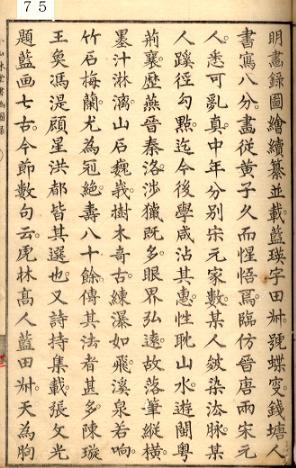 75
明畵錄圖繪續纂並載藍瑛字田叔號蝶叟錢塘人
書寫八分畵從黄子久而惺悟焉臨仿晉唐兩宋元
人悉可亂真中年分别宋元家數某人皴染法脉某
人蹊徑勾點迄今後學咸沾其惠性耽山水遊閩粤
荆襄歷燕晉秦洛涉獵既多眼界弘遠故落筆縱横
墨汁淋漓山石巍峩樹木奇古練瀑如飛溪泉若响
竹石梅蘭尤為冠絶壽八十餘傳其法者甚多陳璇
王奐馮湜顧星洪都皆其選也又詩持集載張文光
題藍画七古今節數句云虎林髙人藍田叔天為胸